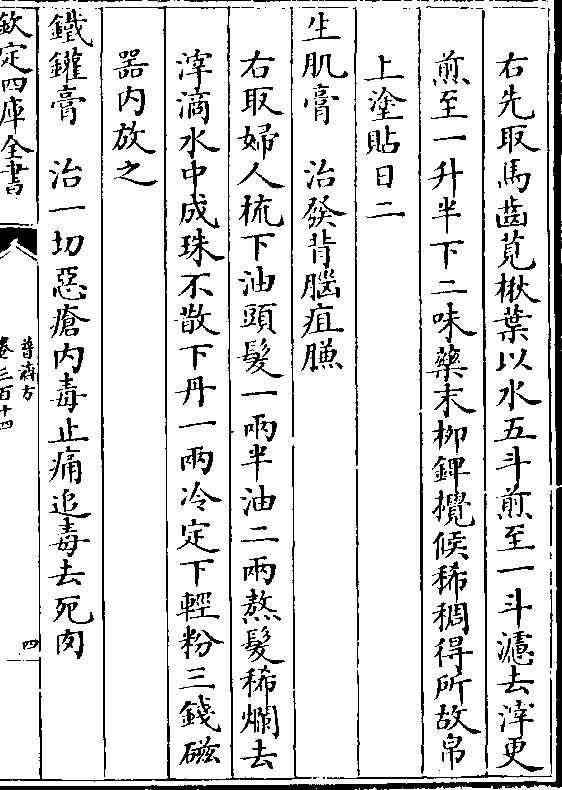 右先取馬齒莧楸葉以水五斗煎至一斗濾去滓更
煎至一升半下二味藥末柳錍攪候稀稠得所故帛
上塗貼日二
生肌膏　治發背腦疽臁
右取婦人梳下油頭髮一兩半油二兩熬髮稀爛去
滓滴水中成珠不散下丹一兩冷定下輕粉三錢磁
器内放之
鐵鑵膏　治一切惡瘡内毒止痛追毒去死肉
欽定四庫全書
普濟方
卷三百十四
四